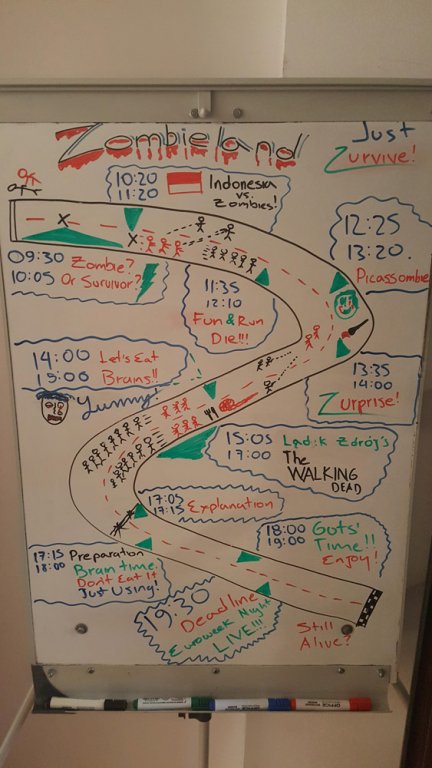 Zombieland
Just
Zurvive!
10:20
11:20
Indonesia
vs.
Zombies!
12:25
13:20.
Picassombie
09:30
10:05
Zombie?
Or Survivor?
11:35
12:10
Fun & Run
DIE!!!
14:00
15:00
Let's Eat
Brains!!
Yummy!
13:35
14:00
Zurprise!
15:05
17:00
Lądek Zdrój's
The
WALKING
DEAD
17:05
17:15
Explanation
18:00
19:00
Guts'
Time!!
Enjoy!
17:15
18:00
Preparation
Brain time
Don't Eat It
Just Using!
19:30
Deadline
Euroweek Night
LIVE!!!
Still
Alive?